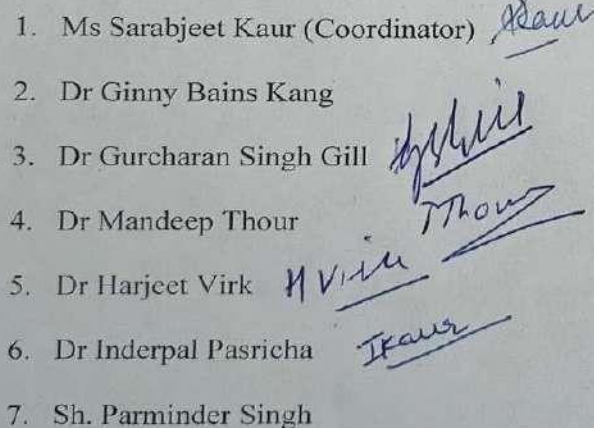 1. Ms Sarabjeet Kaur (Coordinator)
2. Dr Ginny Bains Kang
3. Dr Gurcharan Singh Gill
4. Dr Mandeep Thour
5. Dr Harjeet Virk H Virk
6. Dr Inderpal Pasricha IKaur
7. Sh. Parminder Singh